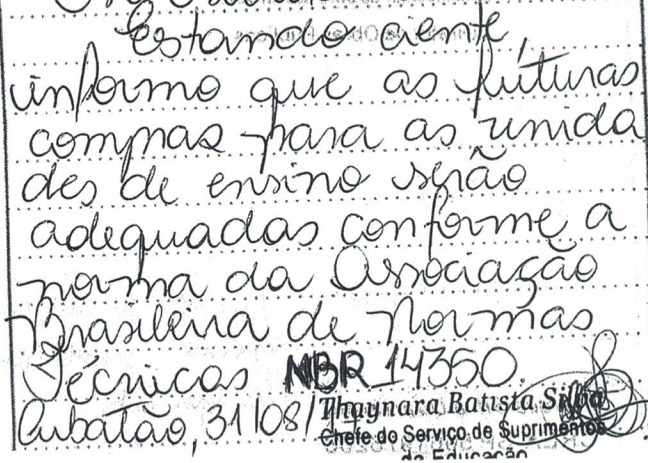 Estando ciente,
informo que as futuras
compras para as unida
des de ensino serão
adequadas conforme a
norma da Associação
Brasileira de Normas
Técnicas NBR 14350.
Cubatão, 31/08/
Thaynara Batista Silva
Chefe do Serviço de Suprimentos
da Educação